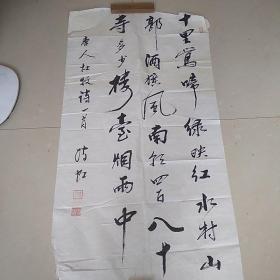 千里鶯啼绿映红水村山
郭酒旗风南朝四百八十
寺多少楼臺烟雨中
唐人杜牧诗一首